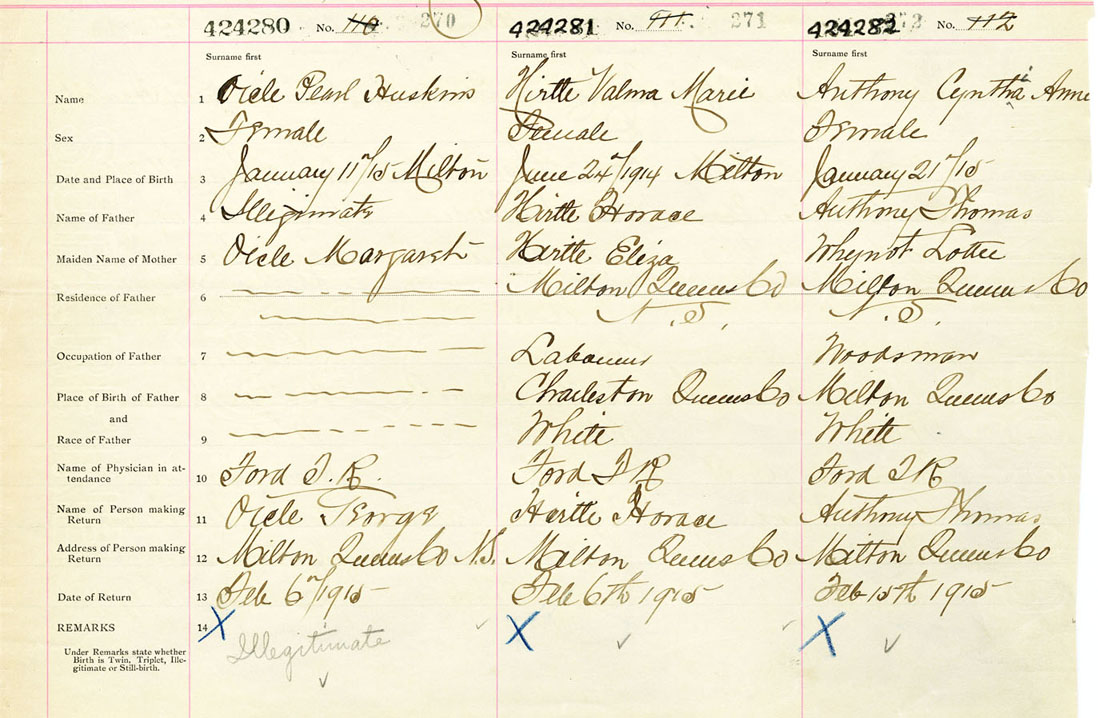 424280 No. 110 270 424281 No. 111. 271 424282 272 No. 112
Surname first Surname first Surname first
Name 1 Oicle Pearl Huskins Hirtle Valma Marie Anthony Cynthia Anne
Sex 2 Female Female Female
Date and Place of Birth 3 January 11th/15 Milton June 24th/1914 Milton January 21st/15
Name of Father 4 Illigimate Hirtle Horace Anthony Thomas
Maiden Name of Mother 5 Oicle Margaret Hirtle Eliza Whynot Lottie
Residence of Father 6 Milton Queens Co Milton Queens Co
N.S. N.S.
Occupation of Father 7 Labourer Woodsman
Place of Birth of Father 8 Charleston Queens Co Milton Queens Co
and
Race of Father 9 White White
Name of Physician in at-
tendance 10 Ford T. R. Ford T R Ford T R
Name of Person making
Return 11 Oicle George Hirtle Horace Anthony Thomas
Address of Person making
Return 12 Milton Queens Co N.S. Milton Queens Co Milton Queens Co
Date of Return 13 Feb 6th/1915 Feb 6th 1915 Feb 15th 1915
REMARKS 14 X X X
Illegitimate
Under Remarks state whether
Birth is Twin, Triplet, Ille-
gitimate or Still-birth.